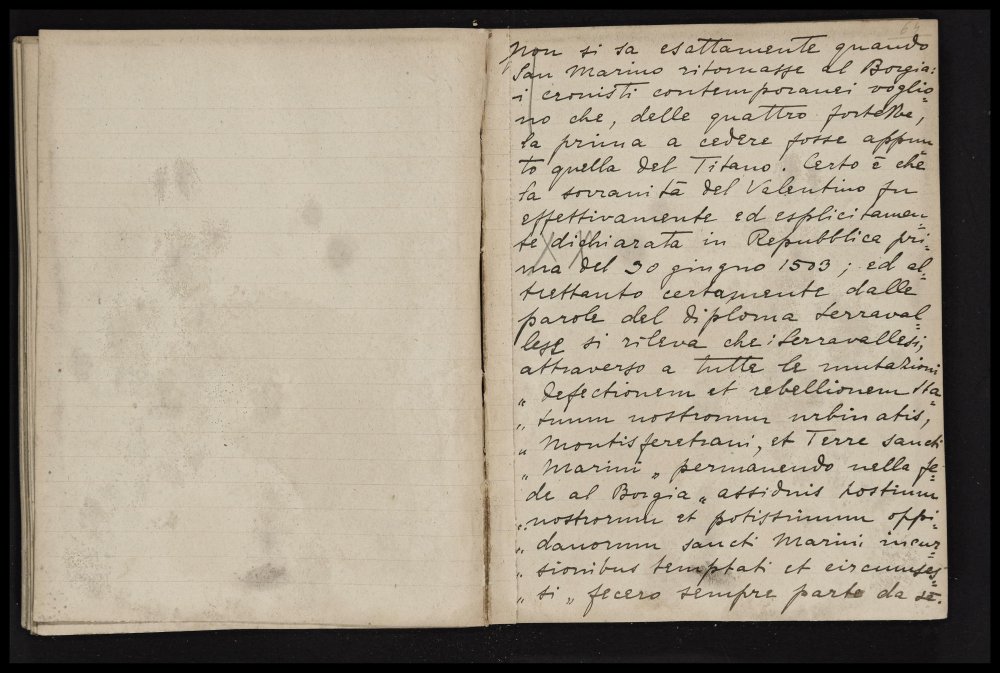 64
Non si sa esattamente quando
San Marino ritornasse al Borgia:
i cronisti contemporanei voglio=
no che, delle quattro fortezze,
la prima a cedere fosse appun=
to quella del Titano. Certo è che
la sovranità del Valentino fu
effettivamente ed esplicitamen=
te dichiarata in Repubblica pri=
ma del 30 giugno 1503; ed al=
trettanto certamente dalle
parole del diploma Serraval=
lese si rileva che i Serravallesi,
attraverso a tutte le mutazioni
„ defectionem et rebellionem sta=
„ tuum nostrorum urbinatis,
„ Montisferetrani, et Terre sancti
„ Marini „ permanendo nella fe=
de al Borgia „ assiduis hostium
„ nostrorum et potissimum oppi=
„ danorum sancti Marini incur=
„ sionibus temptati et circumses=
„ si „ fecero sempre parte da se.